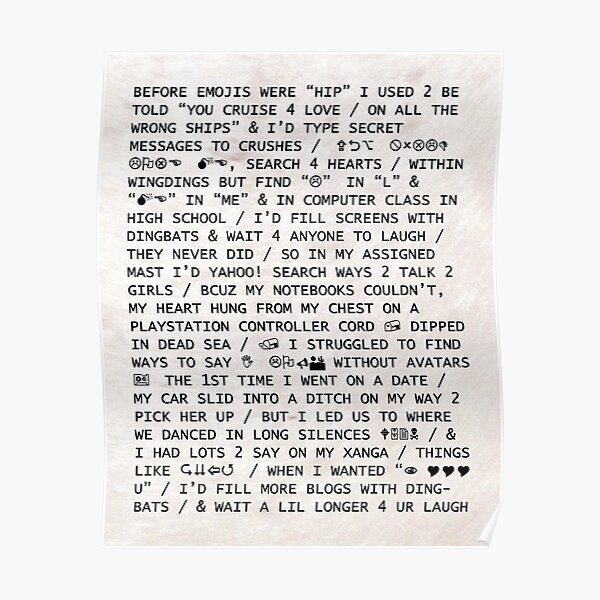 BEFORE EMOJIS WERE “HIP” I USED 2 BE
TOLD “YOU CRUISE 4 LOVE / ON ALL THE
WRONG SHIPS” & I’D TYPE SECRET
MESSAGES TO CRUSHES /
, SEARCH 4 HEARTS / WITHIN
WINGDINGS BUT FIND “☹” IN “L” &
“💣︎☜” IN “ME” & IN COMPUTER CLASS IN
HIGH SCHOOL / I’D FILL SCREENS WITH
DINGBATS & WAIT 4 ANYONE TO LAUGH /
THEY NEVER DID / SO IN MY ASSIGNED
MAST I’D YAHOO! SEARCH WAYS 2 TALK 2
GIRLS / BCUZ MY NOTEBOOKS COULDN’T,
MY HEART HUNG FROM MY CHEST ON A
PLAYSTATION CONTROLLER CORD DIPPED
IN DEAD SEA / I STRUGGLED TO FIND
WAYS TO SAY WITHOUT AVATARS
THE 1ST TIME I WENT ON A DATE /
MY CAR SLID INTO A DITCH ON MY WAY 2
PICK HER UP / BUT I LED US TO WHERE
WE DANCED IN LONG SILENCES / &
I HAD LOTS 2 SAY ON MY XANGA / THINGS
LIKE / WHEN I WANTED “👁 ♥♥♥
U” / I’D FILL MORE BLOGS WITH DING-
BATS / & WAIT A LIL LONGER 4 UR LAUGH